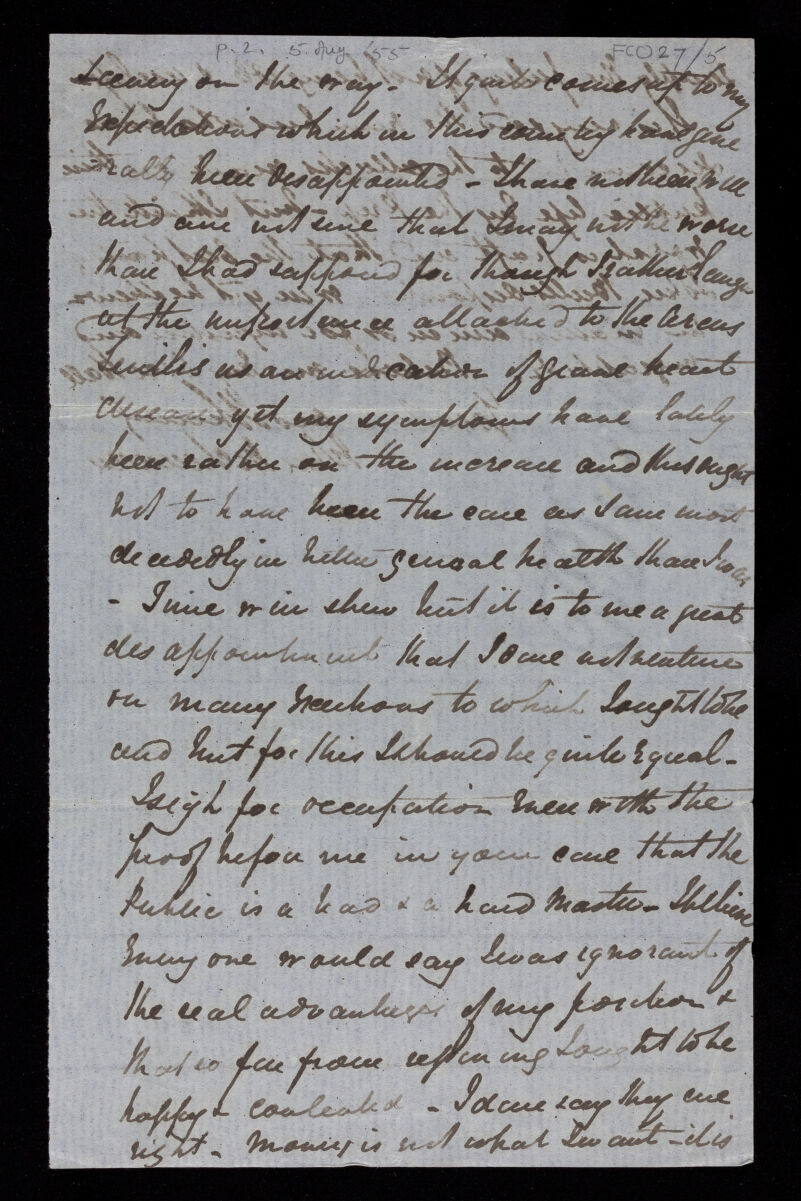 p. 2. 5 Aug /55 FCO27/5
scenery on the way - It quite comes up to my
Expectations which in this country have gene
rally been disappointed - I have not been well
and am not sure that I may not be worse
than I had supposed for though I rather laugh
at the importance attached to the Arcus
Senilis as an indication of grave heart
disease yet my symptoms have lately
been rather on the increase and this ought
not to have been the case as I am most
decidedly in better general health than I was
- Time will shew but it is to me a great
disappointment that I dare not venture
on many Exertions to which I ought to be
and but for this I should be quite Equal -
I sigh for occupation Even with the
proof before me in your case that the
Public is a bad & a hard Master - I believe
Every one would say I was ignorant of
the real advantages of my position &
that so far from repining I ought to be
happy & contented - I dare say they are
right - Money is not what I want - it is